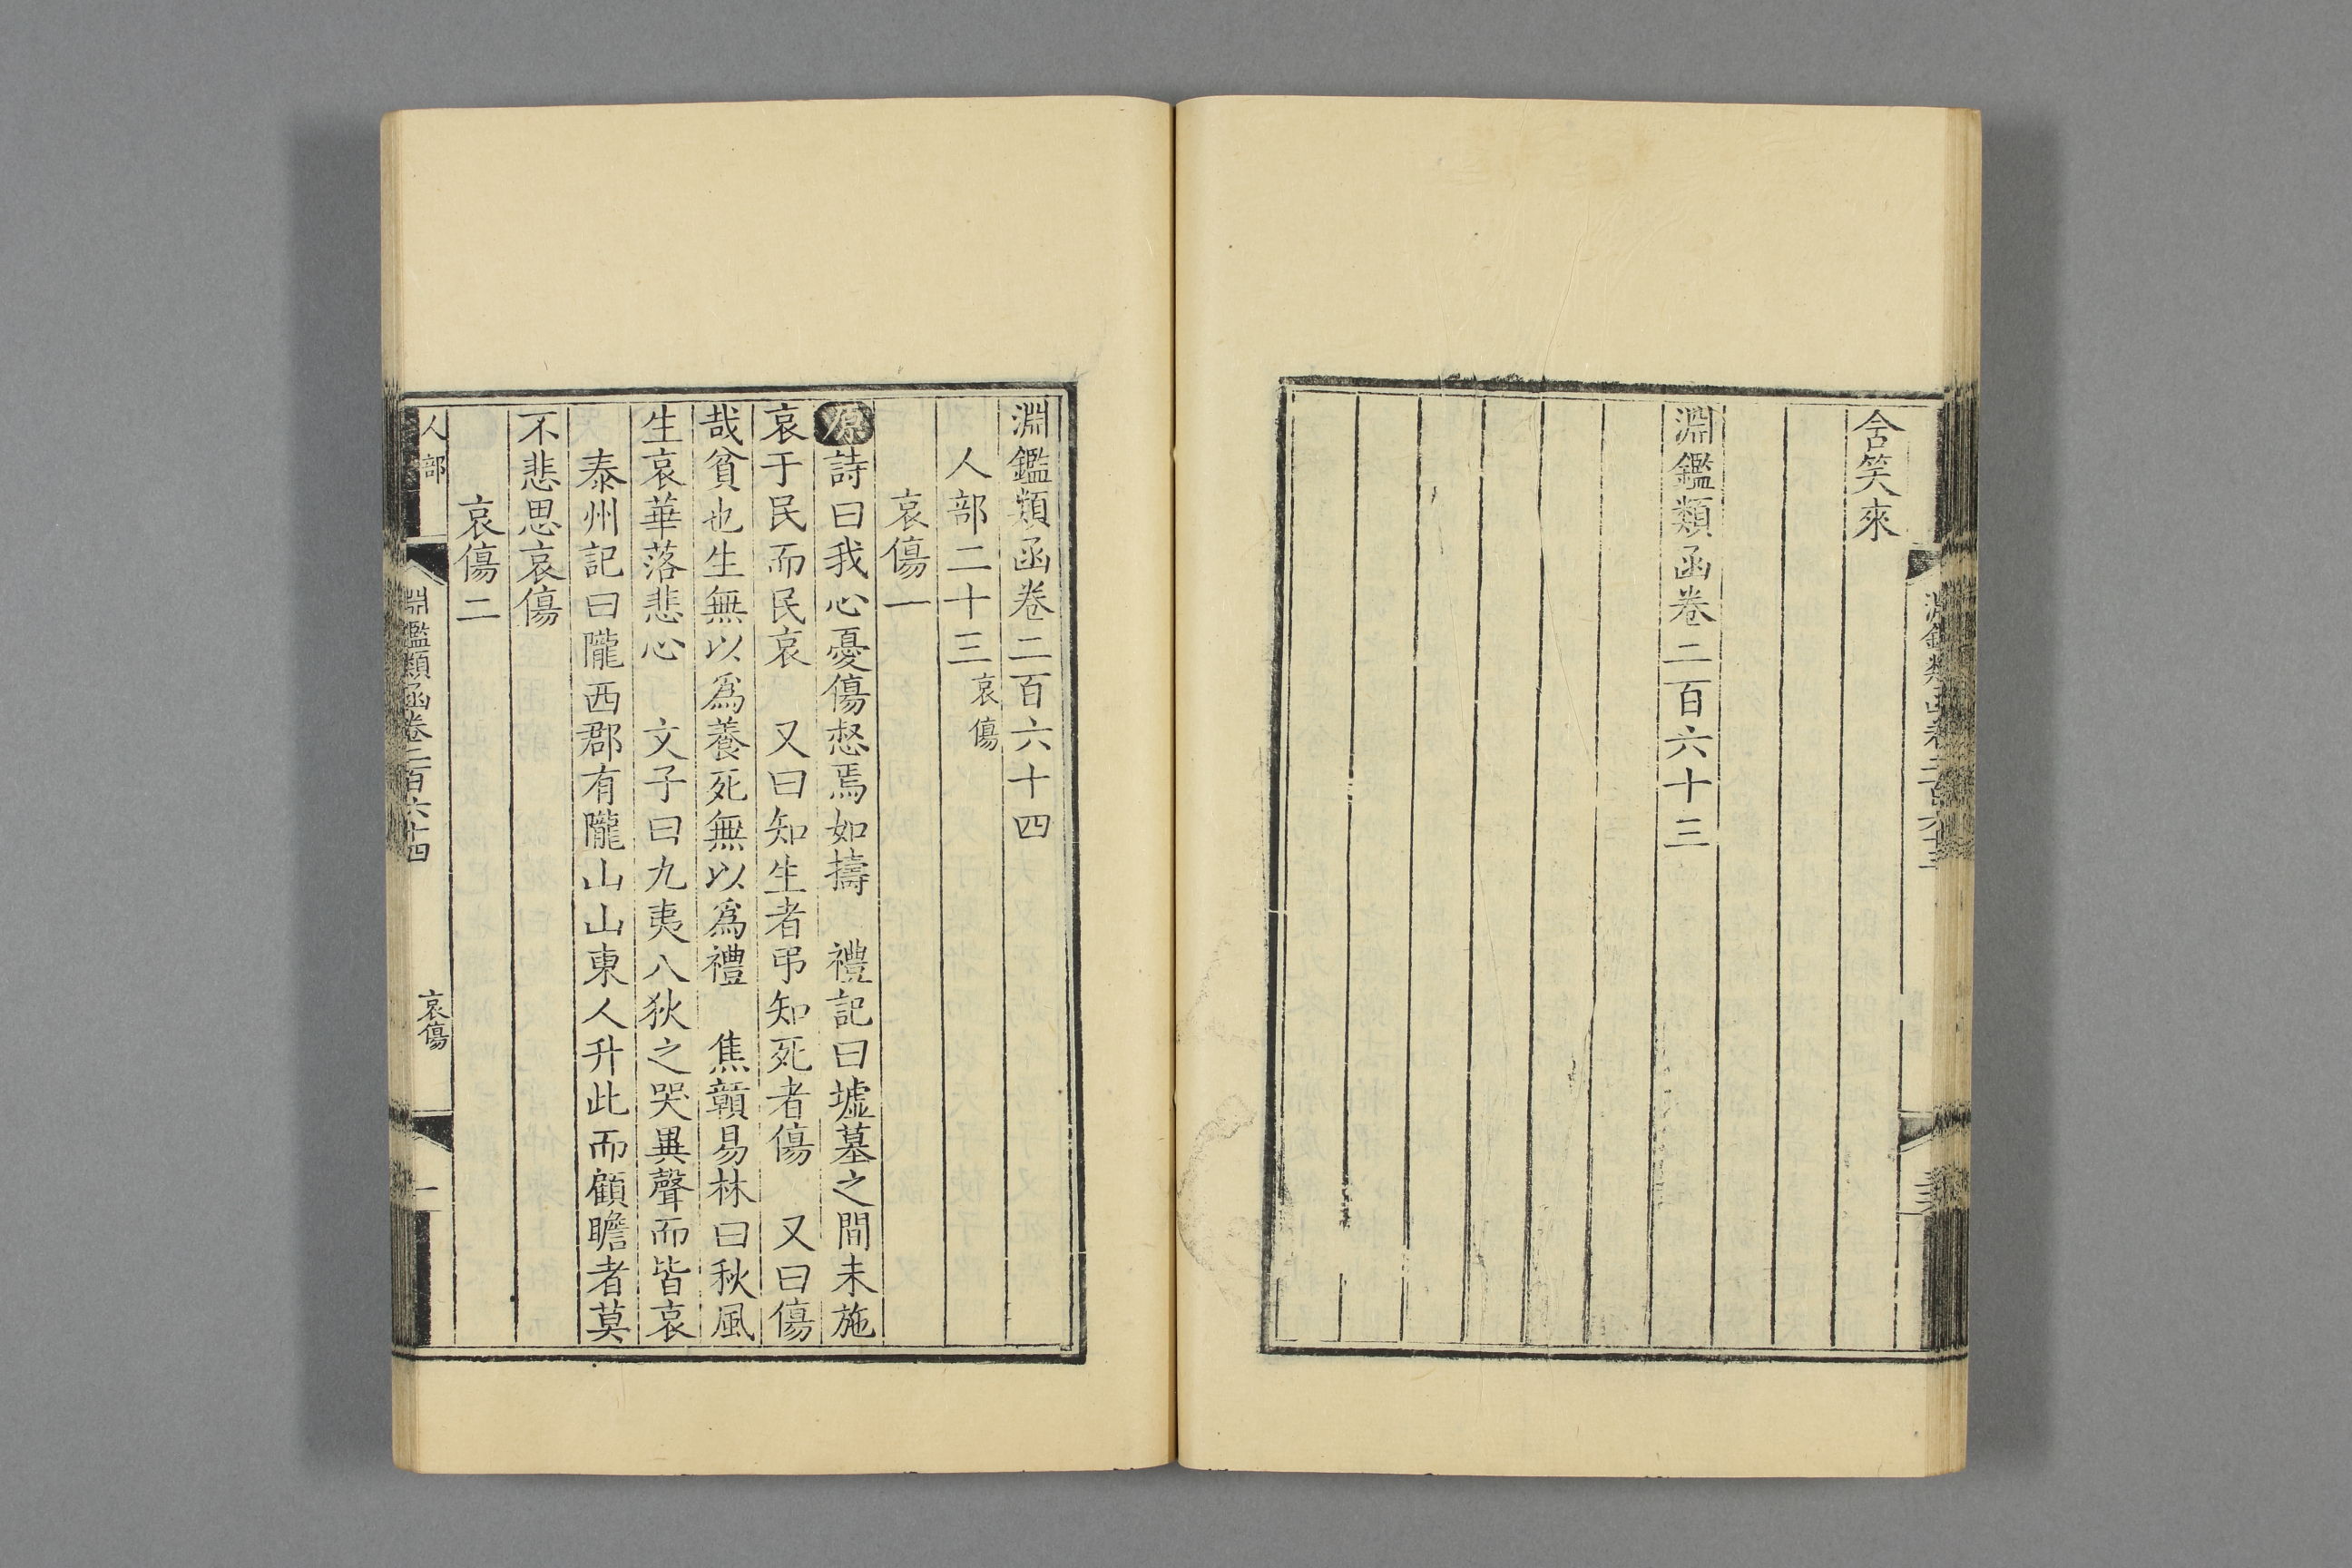 含笑來
淵鑑類函卷二百六十三
淵鑑類函卷二百六十四
人部二十三哀傷
哀傷一
原詩曰我心憂傷惄焉如擣　禮記曰墟墓之間未施
哀于民而民哀　又曰知生者弔知死者傷　又曰傷
哉貧也生無以爲養死無以爲禮　焦贛易林曰秋風
生哀華落悲心　文子曰九夷八狄之哭異聲而皆哀
泰州記曰隴西郡有隴山山東人升此而顧瞻者莫
不悲思哀傷
哀傷二
人部
淵鑑類函卷二百六十四
哀傷
一